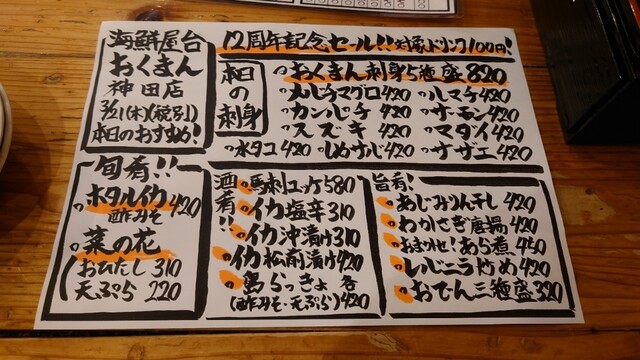 海鮮屋台
おくまん
神田店
3/21(木)(税別)
本日のおすすめ!
12周年記念セール!!対象ドリンク100円!
本日の刺身
おくまん刺身5種盛820
メバチマグロ420
ハマチ420
カンパチ420
サーモン420
スズキ420
マダイ420
水タコ420
しめサバ420
サザエ420
旬肴!!
ホタルイカ420
酢みそ
菜の花
おひたし310
天ぷら220
酒肴!!
馬刺ユッケ580
イカ塩辛310
イカ沖漬け310
イカ松前漬け420
島らっきょ各420
(酢みそ・天ぷら)
旨肴!
あじみりん干し420
わかさぎ唐揚420
おまかせ!あら煮450
レバニラ炒め420
おでん三種盛320